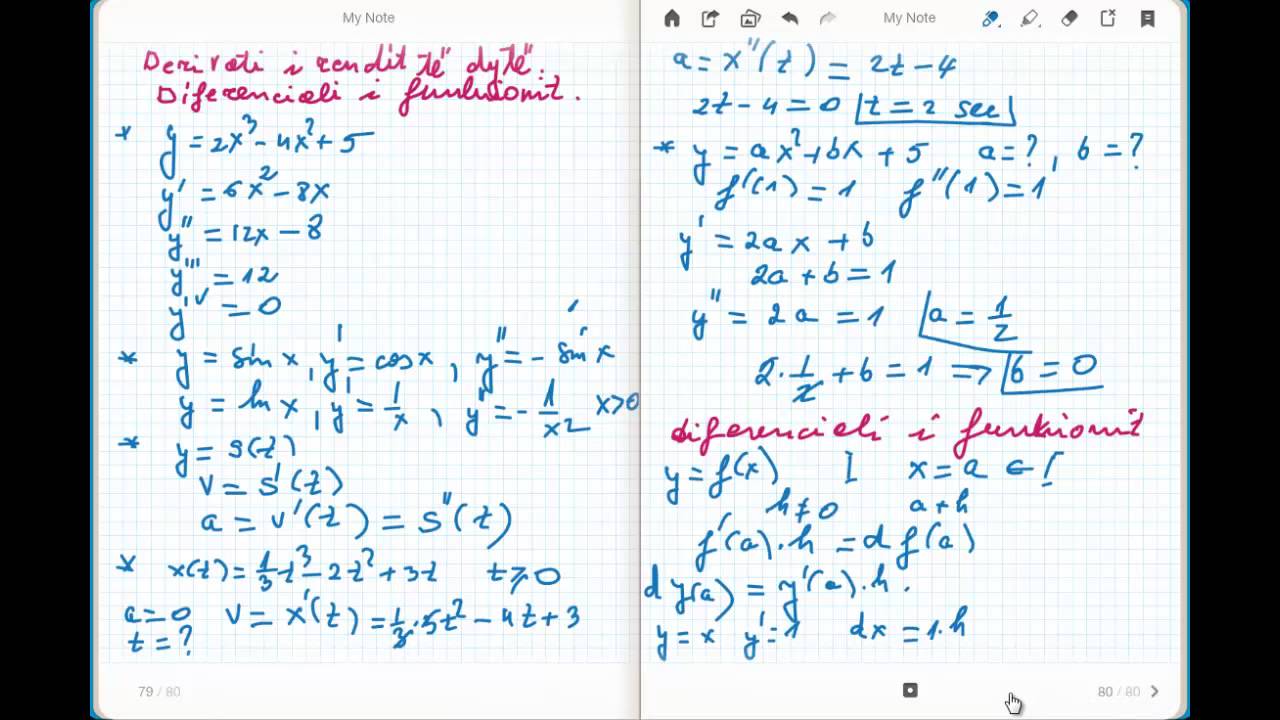 My Note
Derivati i rendit të dytë.
Diferenciali i funksionit.
* y = 2x³ - 4x² + 5
y' = 6x² - 8x
y'' = 12x - 8
y''' = 12
y'ᵛ = 0
* y = sin x, y' = cos x, y'' = - sin x
y = ln x, y' = 1/x, y'' = - 1/x² x>0
* y = s(t)
v = s'(t)
a = v'(t) = s''(t)
* x(t) = 1/3 t³ - 2t² + 3t t ≥ 0
a = 0 v = x'(t) = 1/3 · 3t² - 4t + 3
t = ?
79 / 80
My Note
a = x''(t) = 2t - 4
2t - 4 = 0 t = 2 sec
* y = ax² + bx + 5 a = ?, b = ?
f'(1) = 1 f''(1) = 1
y' = 2ax + b
2a + b = 1
y'' = 2a = 1 a = 1/2
2 · 1/2 + b = 1 => b = 0
diferenciali i funksionit
y = f(x) I x = a ∈ I
h ≠ 0 a + h
f'(a) · h = d f(a)
dy(a) = y'(a) · h.
y = x y' = 1 dx = 1 · h
80 / 80